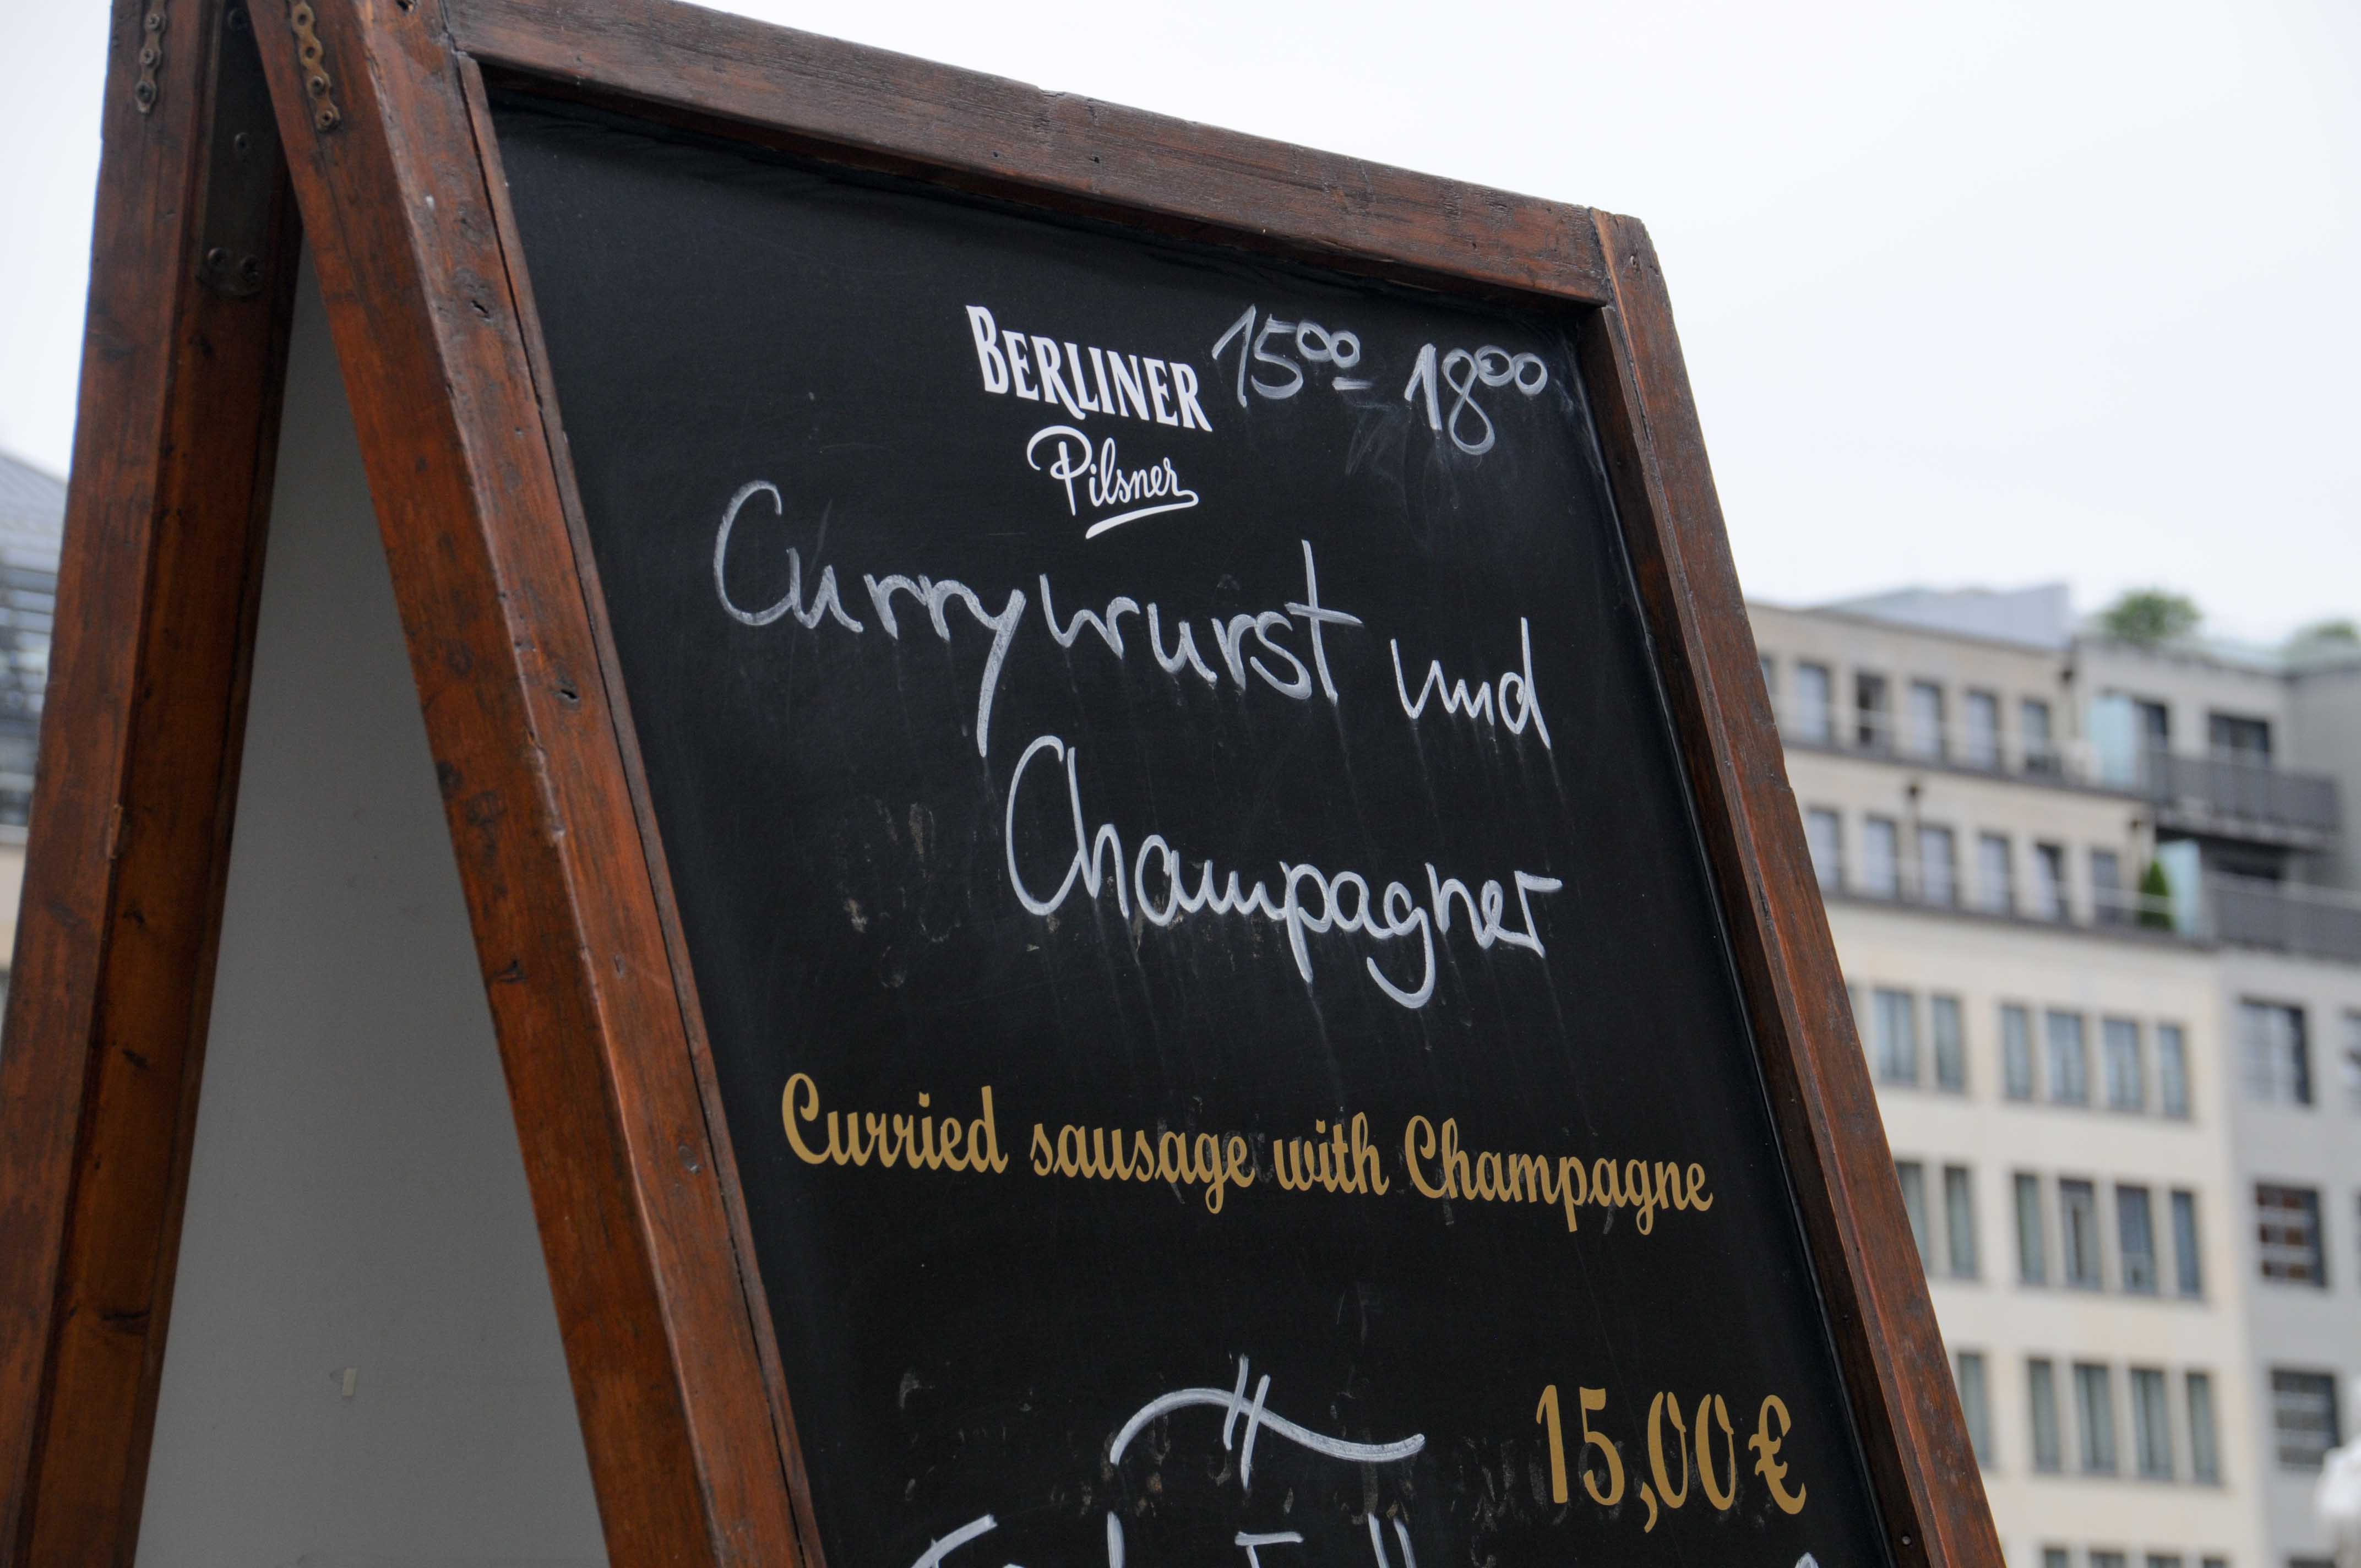 BERLINER 1500 - 1800
Pilsner
Currywurst und
Champagner
Curried sausage with Champagne
15,00 €